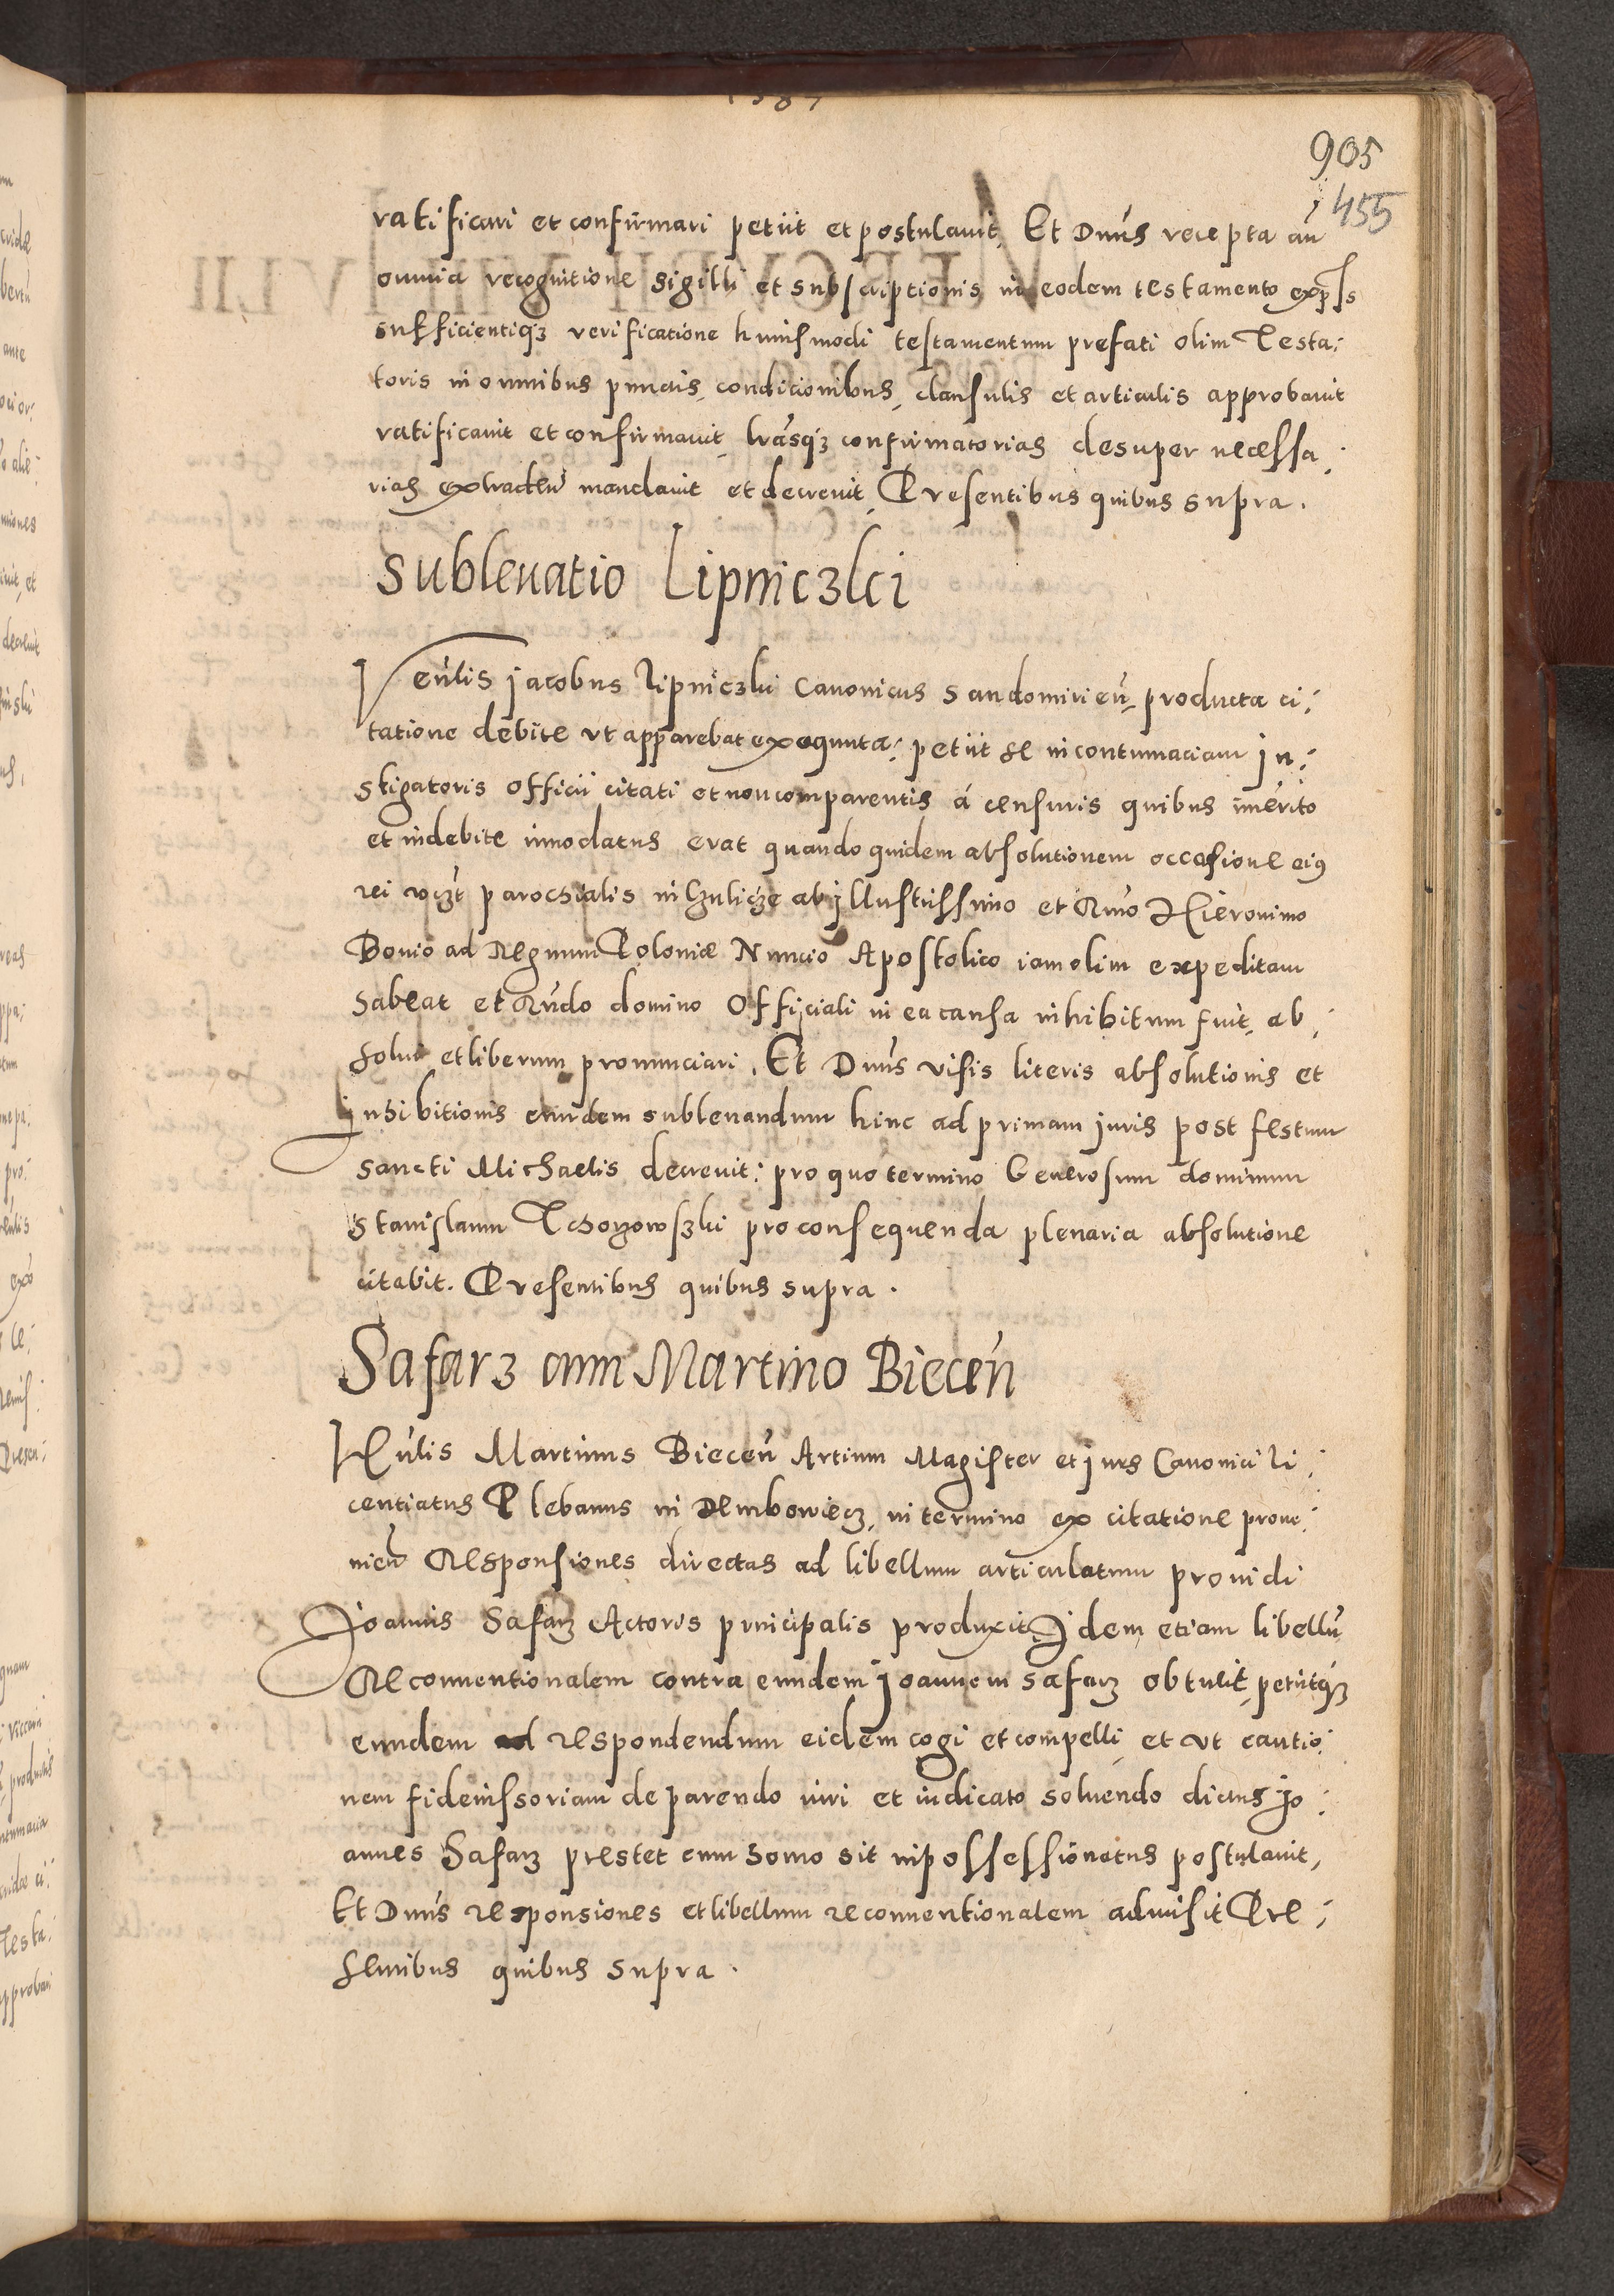 1587
905
455
ratificari et confirmari petiit et postulavit, Et Dnūs recepta an
omnia recognitione sigilli et subscriptionis in eodem testamento
sufficientiqȝ verificatione huiusmodi testamentum prefati olim Testa:
toris in omnibus punctis, condicionibus, clausulis et articulis approbavit
ratificavit et confirmavit, lrasqȝ confirmatorias desuper necessa:
rias mandavit et decrevit, Presentibus quibus supra.
Sublevatio Lipniczki
Venlis Jacobus Lipniczki Canonicus Sandomirien̄, producta ci:
tatione debite ut apparebat exequuta: petiit se in contumaciam In:
stigatoris officii citati et non comparentis á censuris quibus im̄erito
et indebite innodatus erat quandoquidem absolutionem occasione eiꝰ
rei parochialis in ab Illustrissimo et Rmo Hieronimo
Bovio ad Regnum Poloniæ Nuncio Apostolico iam olim expeditam
habeat et Rndo domino Officiali in ea causa inhibitum fuit, ab:
solvi et liberum pronunciari. Et Dnūs visis literis absolutionis et
inhibitionis eundem sublevandum hinc ad primam Juris post festum
Sancti Michaelis decrevit: pro quo termino Generosum dominum
Stanislaum pro consequenda plenaria absolutione
citabit. Presentibus quibus supra.
Safarz cum Martino Biecen̄
Hn̄lis Martinus Biecen̄ Artium Magister et Juris Canonici li:
centiatus Plebanus in Dembowiecz, in termino ex citatione prove:
nien̄ Responsiones directas ad libellum articulatum providi
Joannis Safarz Actoris principalis produxit, Idem etiam libellū
Reconventionalem contra eundem Joannem Safarz obtulit, petiitqȝ
eundem ad respondendum eidem cogi et compelli, et ut cautio:
nem fideiussoriam de parendo iuri et iudicato solvendo dictus Jo:
annes Safarz prestet cum homo sit inpossessionatus postulavit,
Et Dnūs responsiones et libellum reconventionalem admisit Pre:
sentibus quibus supra.